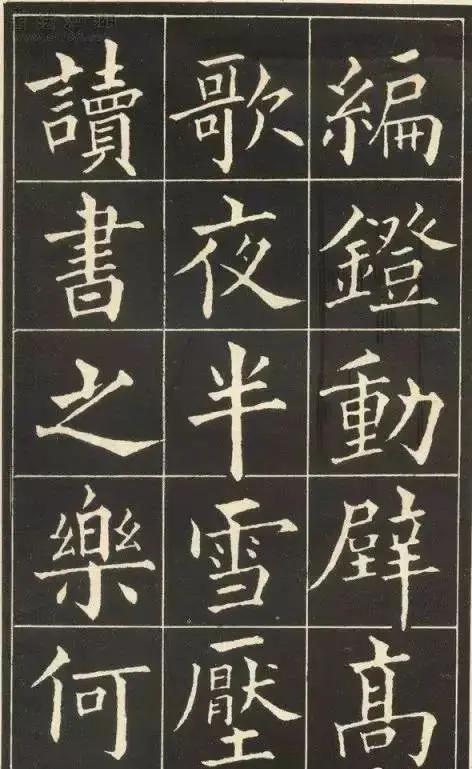 編鐙動壁高
歌夜半雪壓
讀書之樂何